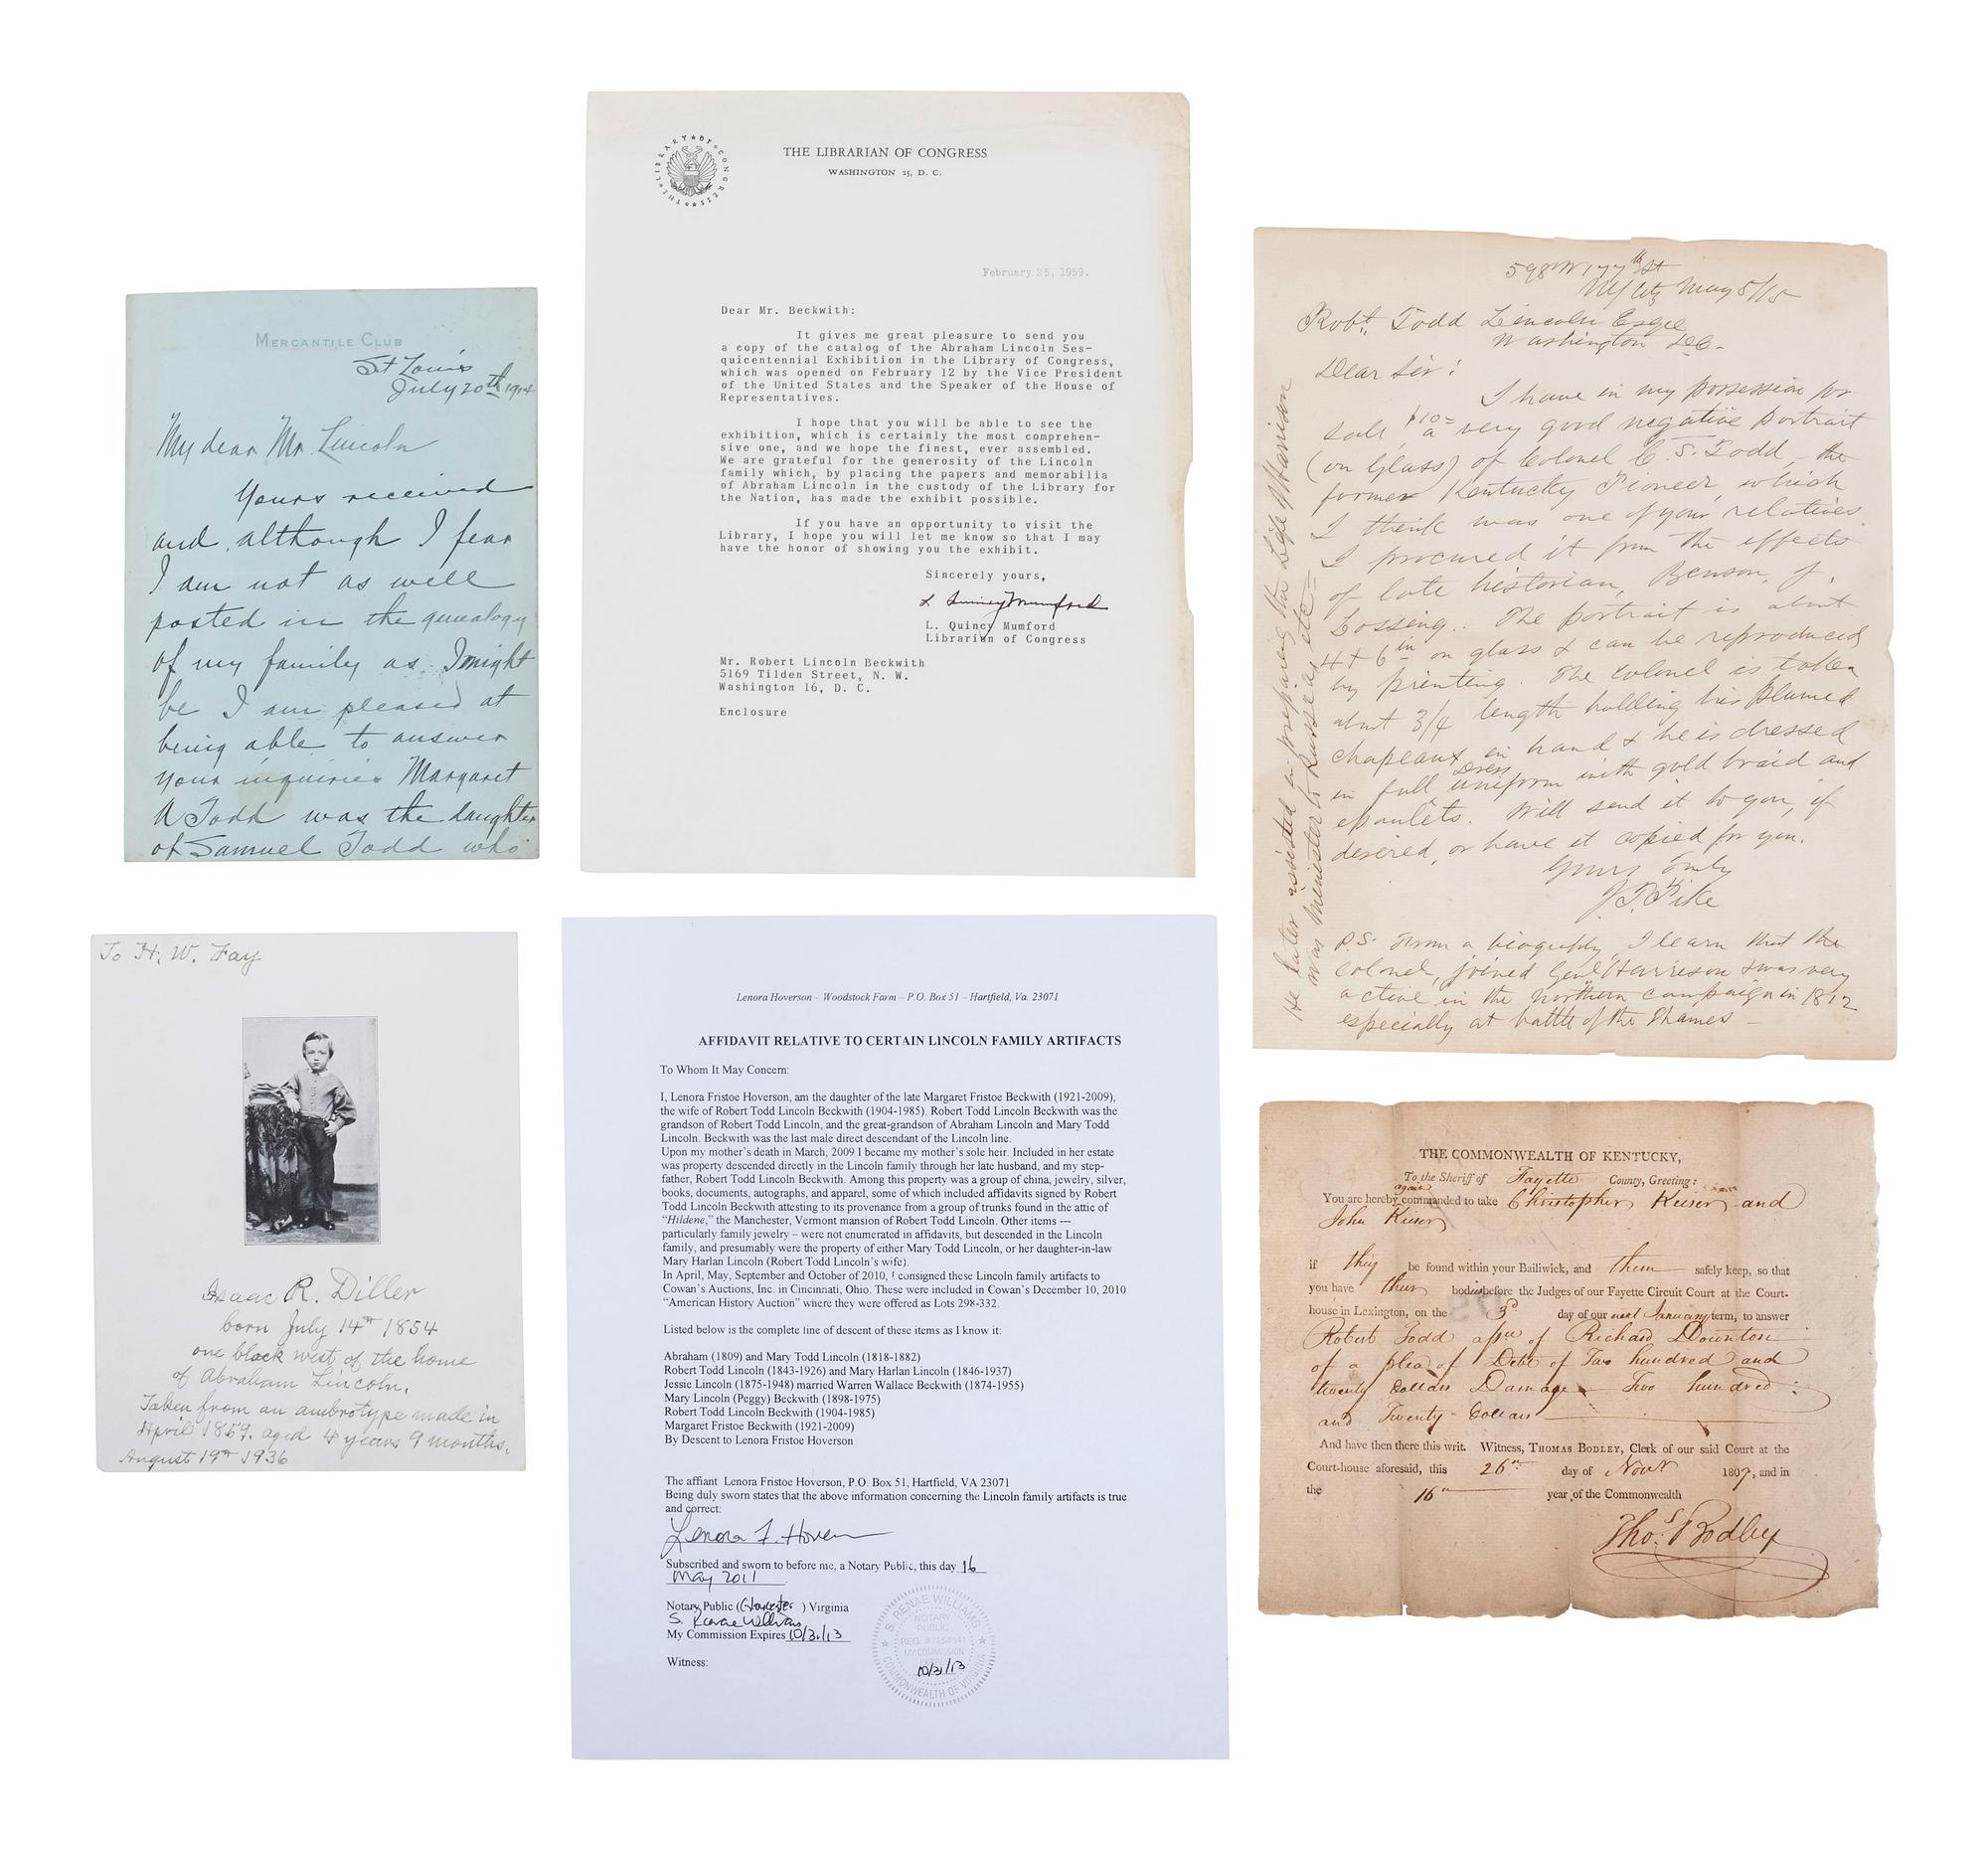 MERCANTILE CLUB
St Louis
July 20th 1904
My dear Mr. Lincoln
Yours received
and, although I fear
I am not as well
posted in the genealogy
of my family as I might
be I am pleased at
being able to answer
your inquiries Margaret
A Todd was the daughter
of Samuel Todd who
THE LIBRARY OF CONGRESS
THE LIBRARIAN OF CONGRESS
WASHINGTON 25, D. C.
February 25, 1959.
Dear Mr. Beckwith:
It gives me great pleasure to send you
a copy of the catalog of the Abraham Lincoln Ses-
quicentennial Exhibition in the Library of Congress,
which was opened on February 12 by the Vice President
of the United States and the Speaker of the House of
Representatives.
I hope that you will be able to see the
exhibition, which is certainly the most comprehen-
sive one, and we hope the finest, ever assembled.
We are grateful for the generosity of the Lincoln
family which, by placing the papers and memorabilia
of Abraham Lincoln in the custody of the Library for
the Nation, has made the exhibit possible.
If you have an opportunity to visit the
Library, I hope you will let me know so that I may
have the honor of showing you the exhibit.
Sincerely yours,
L Quincy Mumford
L. Quincy Mumford
Librarian of Congress
Mr. Robert Lincoln Beckwith
5169 Tilden Street, N. W.
Washington 16, D. C.
Enclosure
598 W 177th St
NY City May 5/15
Robt. Todd Lincoln Esqre
Washington DC-
Dear Sir:
I have in my possession for
sale, $10= a very good negative portrait
(on Glass) of Colonel C. S. Todd - the
former Kentucky Pioneer, which
I think was one of your relatives
I procured it from the effects
of late historian, Benson, J.
Lossing. The portrait is about
4 + 6 in on glass & can be reproduced
by printing. The colonel is taken
about 3/4 length holding his plumed
chapeaux in hand & he is dressed
in full Dress uniform with gold braid and
epaulets. Will send it to you, if
desired, or have it copied for you.
Yours Truly
J. T. Pike
P.S. From a biography, I learn that the
Colonel, joined Genl Harrison & was very
active in the northern campaign in 1812
especially at battle of the Thames -
He later assisted in preparing the Life of Harrison
Was Minister to Russia, etc -
To H. W. Fay
Isaac R. Diller
born July 14th 1854
one block west of the home
of Abraham Lincoln.
Taken from an ambrotype made in
April 1859. aged 4 years 9 months.
August 19th 1936
Lenora Hoverson - Woodstock Farm – P.O. Box 51 – Hartfield, Va. 23071
AFFIDAVIT RELATIVE TO CERTAIN LINCOLN FAMILY ARTIFACTS
To Whom It May Concern:
I, Lenora Fristoe Hoverson, am the daughter of the late Margaret Fristoe Beckwith (1921-2009),
the wife of Robert Todd Lincoln Beckwith (1904-1985). Robert Todd Lincoln Beckwith was the
grandson of Robert Todd Lincoln, and the great-grandson of Abraham Lincoln and Mary Todd
Lincoln. Beckwith was the last male direct descendant of the Lincoln line.
Upon my mother's death in March, 2009 I became my mother's sole heir. Included in her estate
was property descended directly in the Lincoln family through her late husband, and my step-
father, Robert Todd Lincoln Beckwith. Among this property was a group of china, jewelry, silver,
books, documents, autographs, and apparel, some of which included affidavits signed by Robert
Todd Lincoln Beckwith attesting to its provenance from a group of trunks found in the attic of
"Hildene," the Manchester, Vermont mansion of Robert Todd Lincoln. Other items ---
particularly family jewelry – were not enumerated in affidavits, but descended in the Lincoln
family, and presumably were the property of either Mary Todd Lincoln, or her daughter-in-law
Mary Harlan Lincoln (Robert Todd Lincoln's wife).
In April, May, September and October of 2010, I consigned these Lincoln family artifacts to
Cowan's Auctions, Inc. in Cincinnati, Ohio. These were included in Cowan's December 10, 2010
"American History Auction" where they were offered as Lots 298-332.
Listed below is the complete line of descent of these items as I know it:
Abraham (1809) and Mary Todd Lincoln (1818-1882)
Robert Todd Lincoln (1843-1926) and Mary Harlan Lincoln (1846-1937)
Jessie Lincoln (1875-1948) married Warren Wallace Beckwith (1874-1955)
Mary Lincoln (Peggy) Beckwith (1898-1975)
Robert Todd Lincoln Beckwith (1904-1985)
Margaret Fristoe Beckwith (1921-2009)
By Descent to Lenora Fristoe Hoverson
The affiant Lenora Fristoe Hoverson, P.O. Box 51, Hartfield, VA 23071
Being duly sworn states that the above information concerning the Lincoln family artifacts is true
and correct:
Lenora F. Hoverson
Subscribed and sworn to before me, a Notary Public, this day 16
May 2011
Notary Public (Gloucester) Virginia
S. Renae Williams
My Commission Expires 10/31/13
Witness:
S. RENAE WILLIAMS
NOTARY
PUBLIC
MY COMMISSION
10/31/13
COMMONWEALTH OF VIRGINIA
THE COMMONWEALTH OF KENTUCKY,
To the Sheriff of Fayette County, Greeting:
You are hereby again commanded to take Christopher Keiser and
John Keiser
if they be found within your Bailiwick, and them safely keep, so that
you have their bodies before the Judges of our Fayette Circuit Court at the Court-
house in Lexington, on the 3d day of our next January term, to answer
Robert Todd assee of Richard Downton
of a plea of Debt of Two hundred and
twenty Dollars Damage Two hundred
and Twenty Dollars
And have then there this writ. Witness, THOMAS BODLEY, Clerk of our said Court at the
Court-house aforesaid, this 26th day of Novr 1807, and in
the 16th year of the Commonwealth
Thos. Bodley